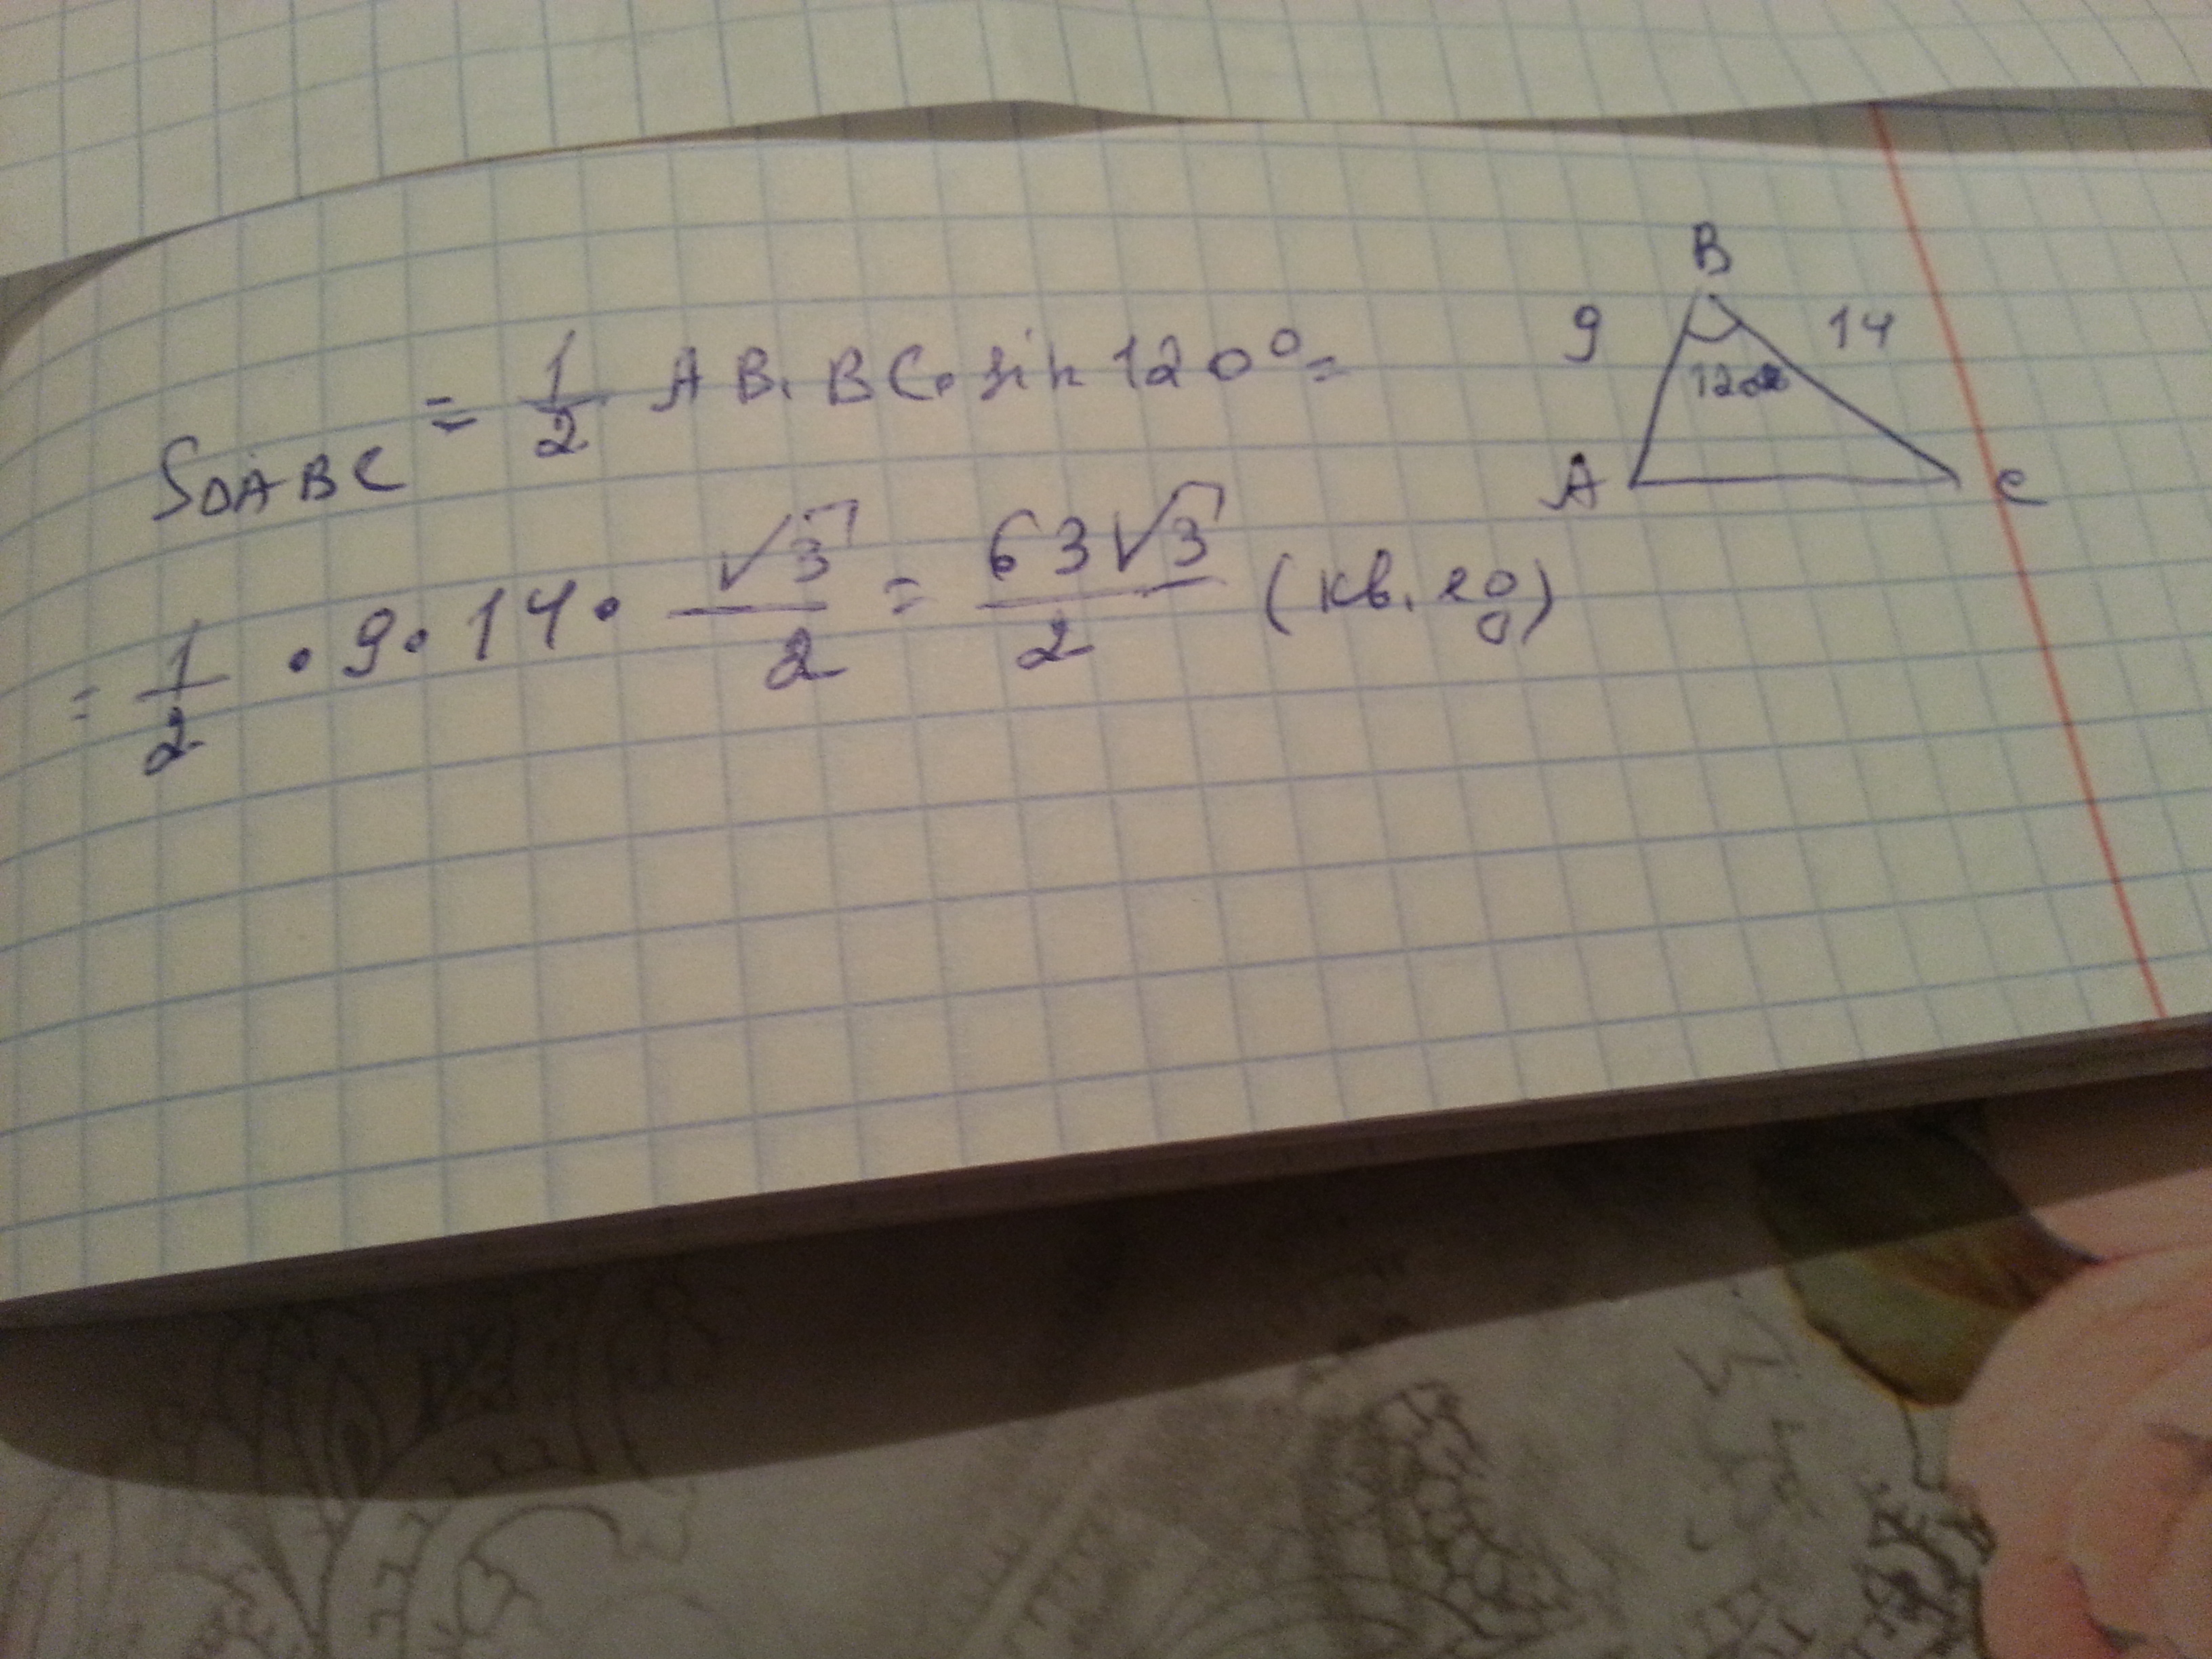 S△ABC = 1/2 AB · BC · sin 120° =
= 1/2 · 9 · 14 · √3/2 = 63√3/2 (кв. ед)
B
9 14
120°
A C